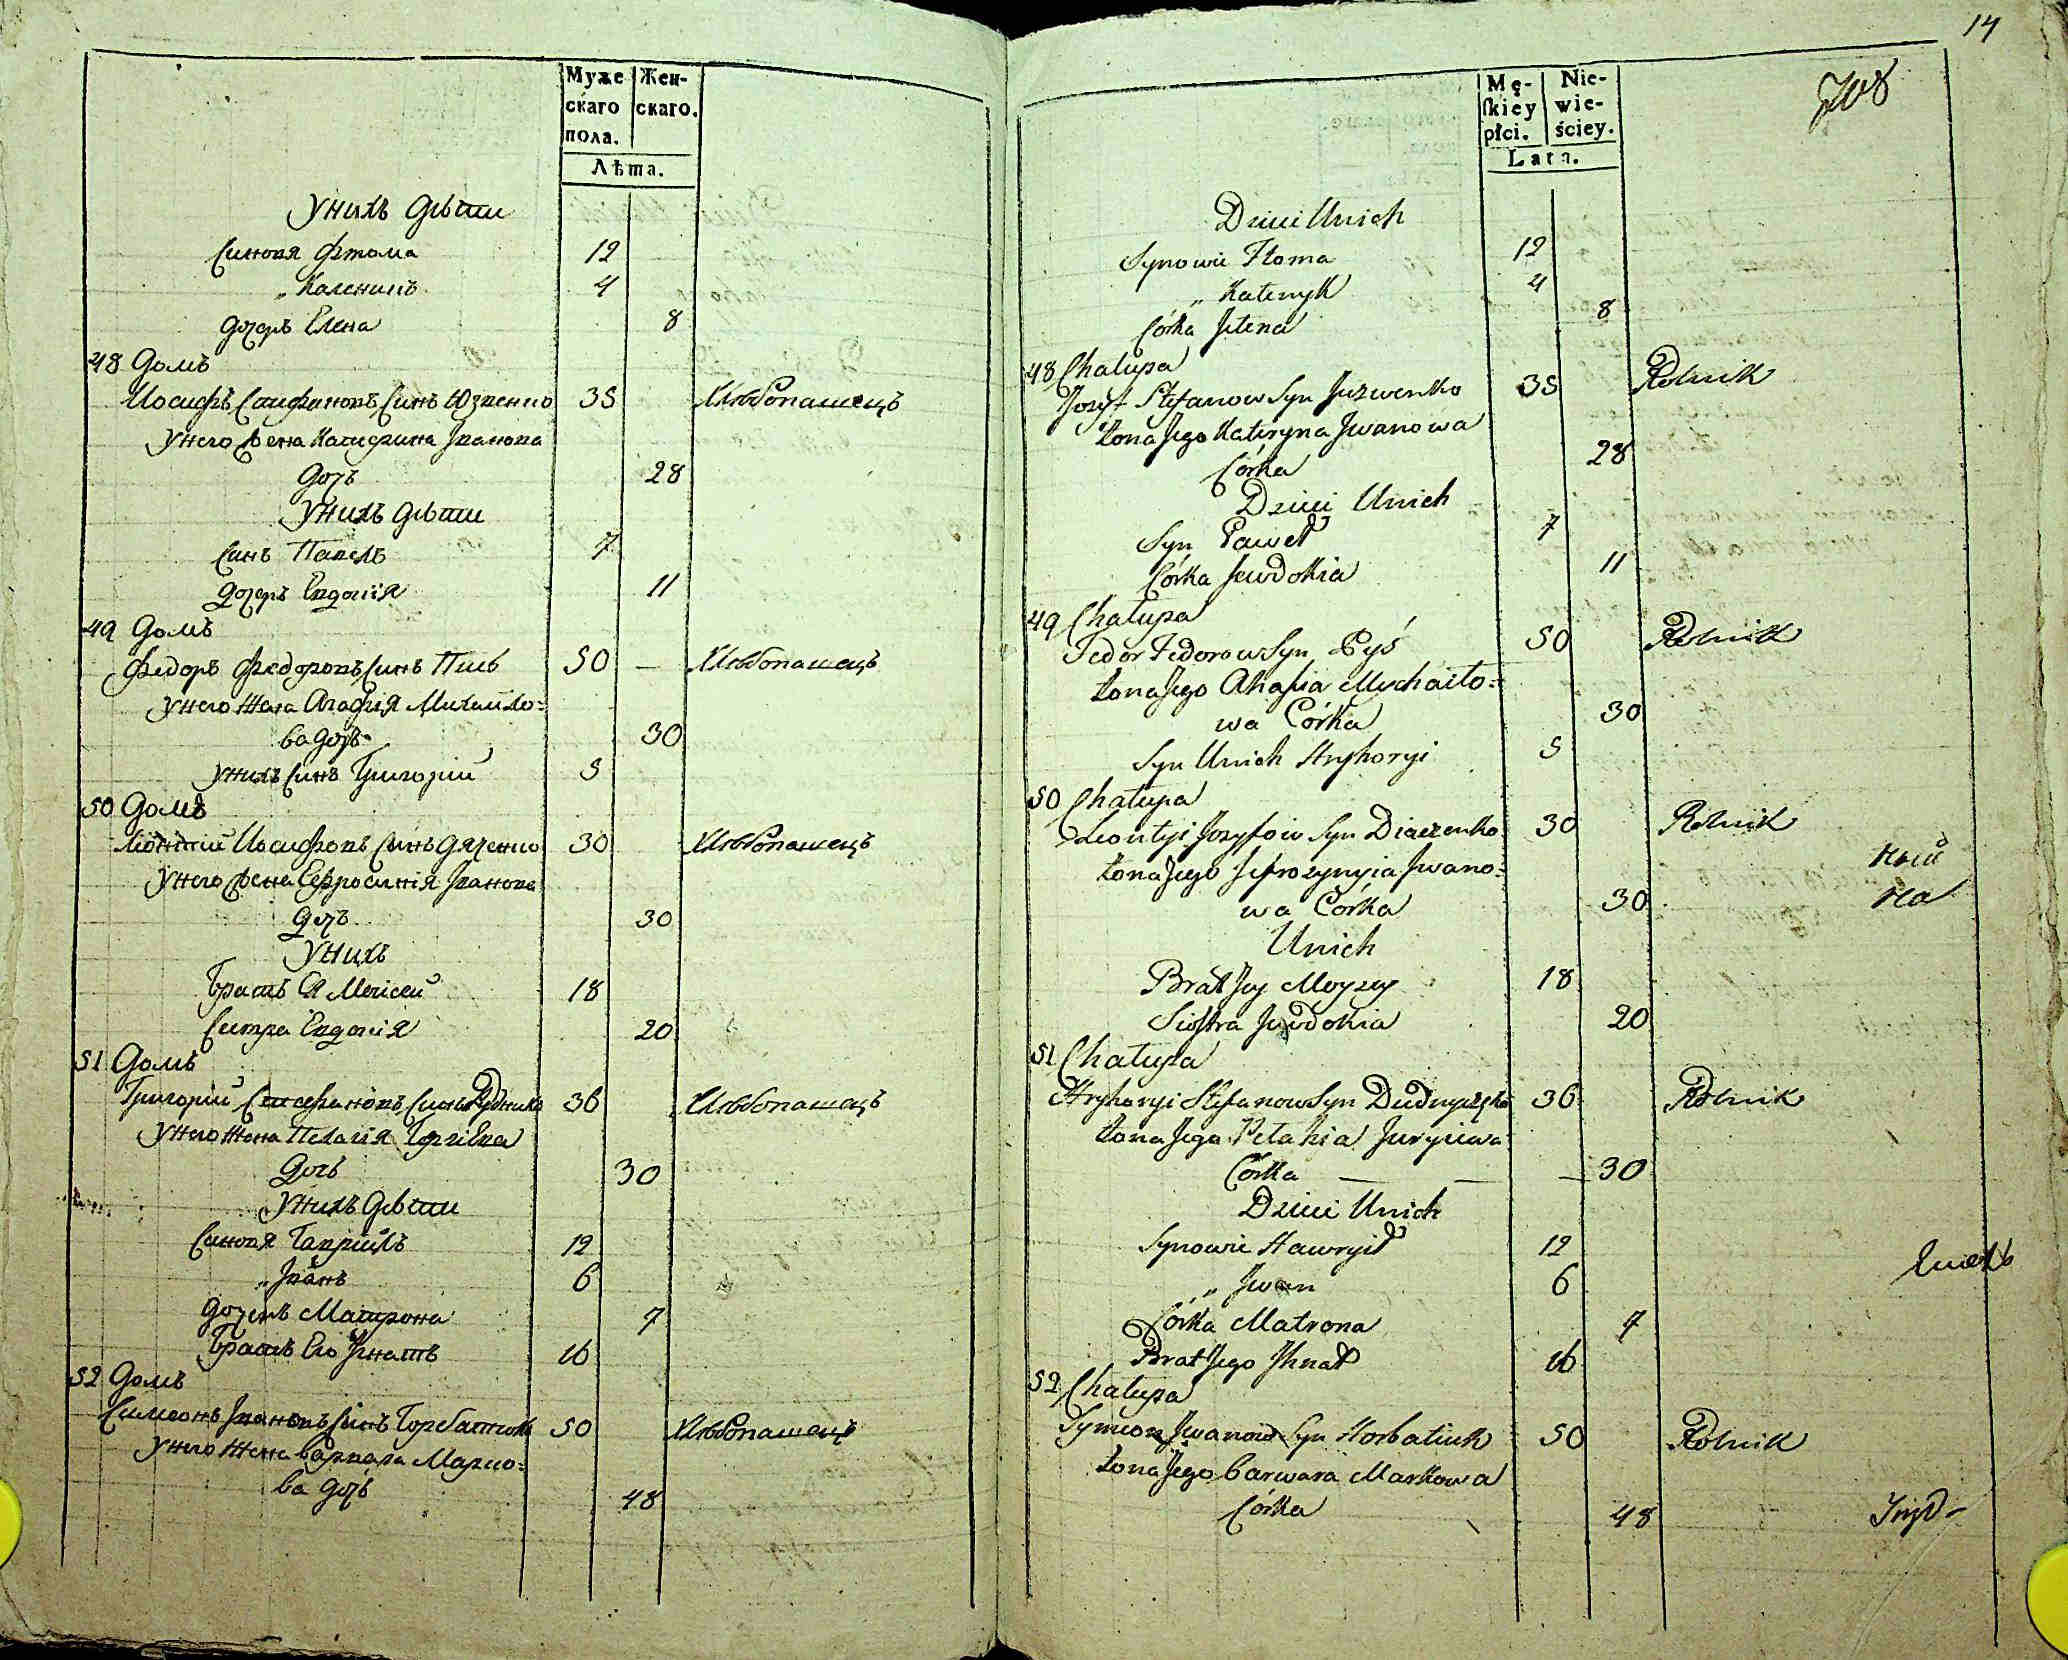 Муже
скаго
пола.
Жен-
скаго.
Лѣта.
Унихъ дѣти
Синовя Фтома 12
„ Каленикъ 4
дочерь Елена 8
48 Домъ
Иосифъ Стефановъ Синъ Юзвенко 35 Хлѣбопашецъ
Унего Жена Катерина Иванова
дочь 28
Унихъ дѣти
Синъ Павелъ 7
дочерь Евдокія 11
49 Домъ
Федоръ Федоровъ Синъ 50 — Хлѣбопашецъ
Унего Жена Агафія Михайло=
ва дочь 30
Унихъ Синъ Григорій 5
50 Домъ
Леонтій Иосифовъ Синъ Дяченко 30 Хлѣбопашецъ
Унего Жена Ефросинія Иванова
дочь 30
Унихъ
Братъ Моисей 18
Систра Евдокія 20
51 Домъ
Григорій Стефановъ Синъ 36 Хлѣбопашецъ
Унего Жена Пелагія
дочь 30
Унихъ дѣти
Синовя Гавріилъ 12
„ Иванъ 6
дочерь Матрона 7
Братъ Его Игнатъ 16
52 Домъ
Симеонъ Ивановъ Синъ Горбатюкъ 50 Хлѣбопашецъ
Унего Жена Варвара Марко=
ва дочь 48
14
Mę-
skiey
płci.
Nie-
wie-
ściey.
Lata.
Dzieci Unich
Synowie Ftoma 12
„ Kalenyk 4
Córka Jelena 8
48 Chałupa
Jozyf Stefanow Syn Juzwenko 35 Rolnik
Żona Jego Kateryna Jwanowa
Córka 28
Dzieci Unich
Syn Paweł 7
Córka Jewdokia 11
49 Chałupa
Fedor Fedorow Syn Pyś 50 Rolnik
Żona Jego Ahafia Mychaiło=
wa Córka 30
Syn Unich Hryhoryi 5
50 Chałupa
Leontyi Jozyfow Syn Diaczenko 30 Rolnik
Żona Jego Jefrozynyia Jwano=
wa Córka 30
Unich
Brat Jey Moyzey 18
Siostra Jewdokia 20
51 Chałupa
Hryhoryi Stefanow Syn 36 Rolnik
Żona Jego Pelahia Juryiewa
Córka — — — 30
Dzieci Unich
Synowie Hawryił 12
„ Jwan 6
Córka Matrona 7
Brat Jego Jhnat 16
52 Chałupa
Symeon Jwanow Syn Horbatiuk 50 Rolnik
Żona Jego Barwara Markowa
Córka 48
ный
на